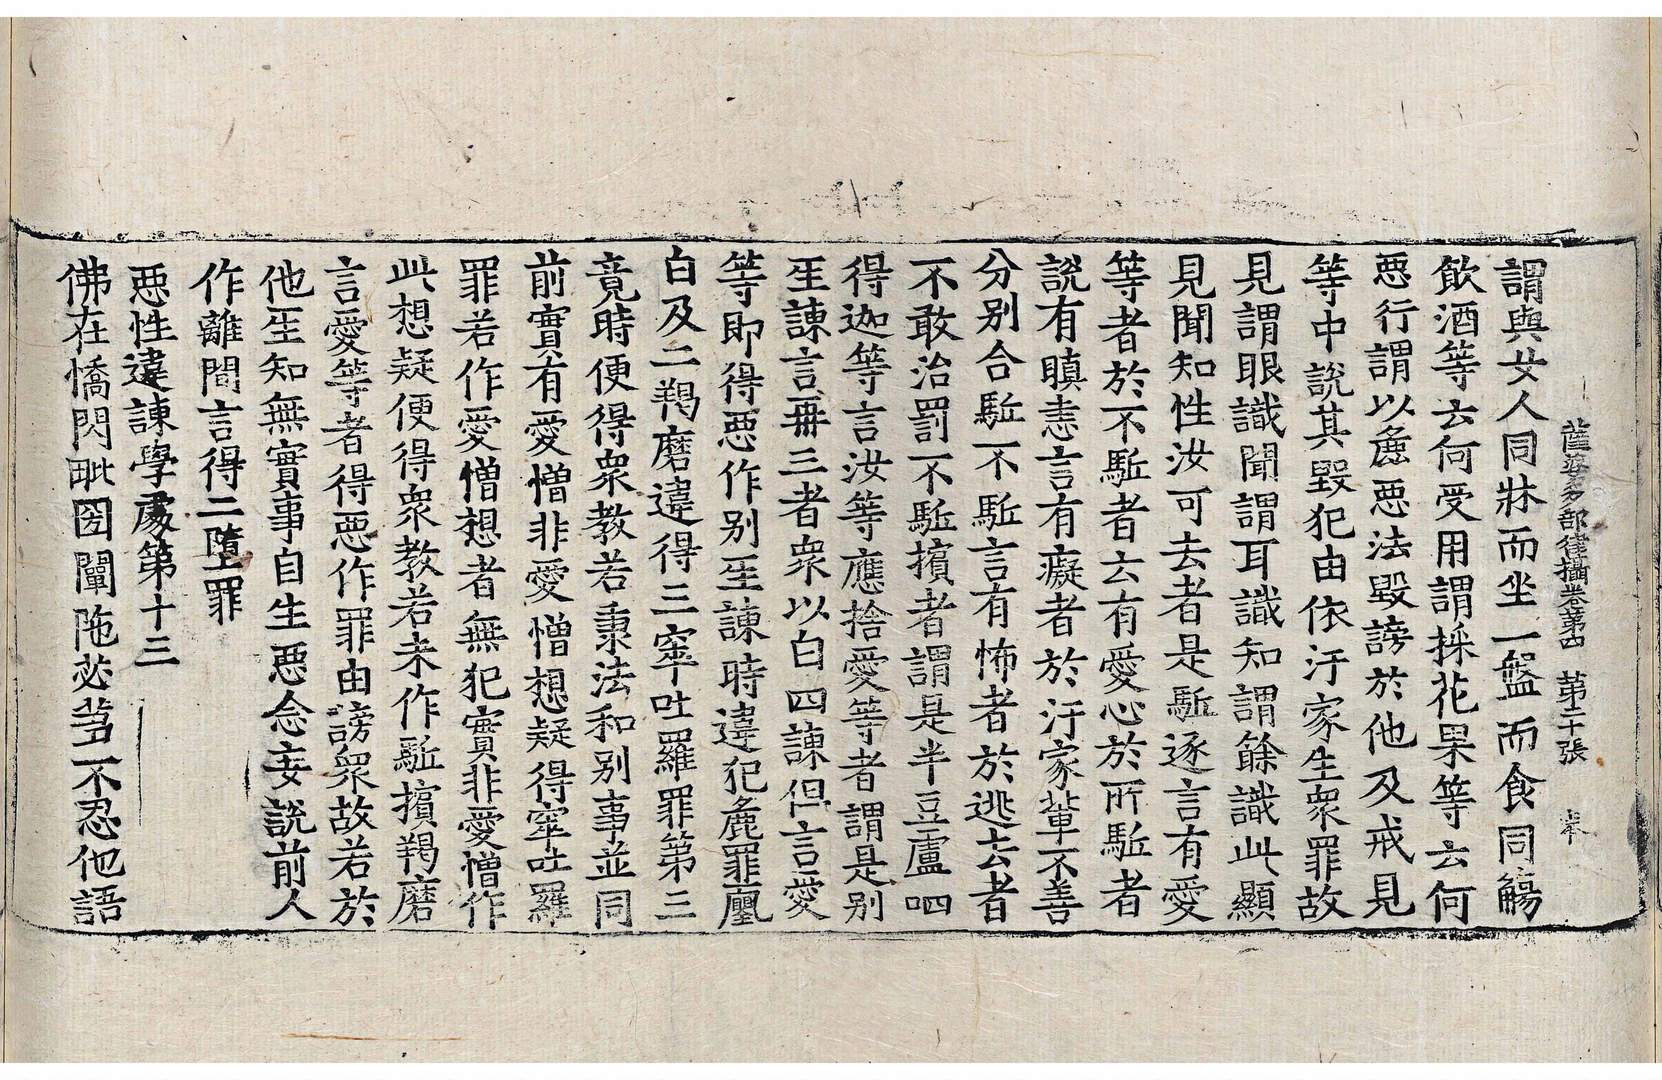 薩婆多部律攝卷第四　第二十張　本
謂與女人同牀而坐一盤而食同觴
飲酒等云何受用謂採花果等云何
惡行謂以麁惡法毀謗於他及戒見
等中說其毀犯由依汙家生衆罪故
見謂眼識聞謂耳識知謂餘識此顯
見聞知性汝可去者是駈逐言有愛
等者於不駈者云有愛心於所駈者
說有瞋恚言有癡者於汙家輩不善
分別合駈不駈言有怖者於逃去者
不敢治罰不駈擯者謂是半豆盧呬
得迦等言汝等應捨愛等者謂是別
生諫言再三者衆以白四諫但言愛
等即得惡作別生諫時違犯麁罪鄔
白及二羯磨違得三窣吐羅罪第三
竟時便得衆教若秉法和別事並同
前實有愛憎非愛憎想疑得窣吐羅
罪若作愛憎想者無犯實非愛憎作
此想疑便得衆教若未作駈擯羯磨
言愛等者得惡作罪由謗衆故若於
他生知無實事自生惡念妄說前人
作離間言得二墮罪
惡性違諫學處第十三
佛在憍閃毗國闡陁苾芻不忍他語